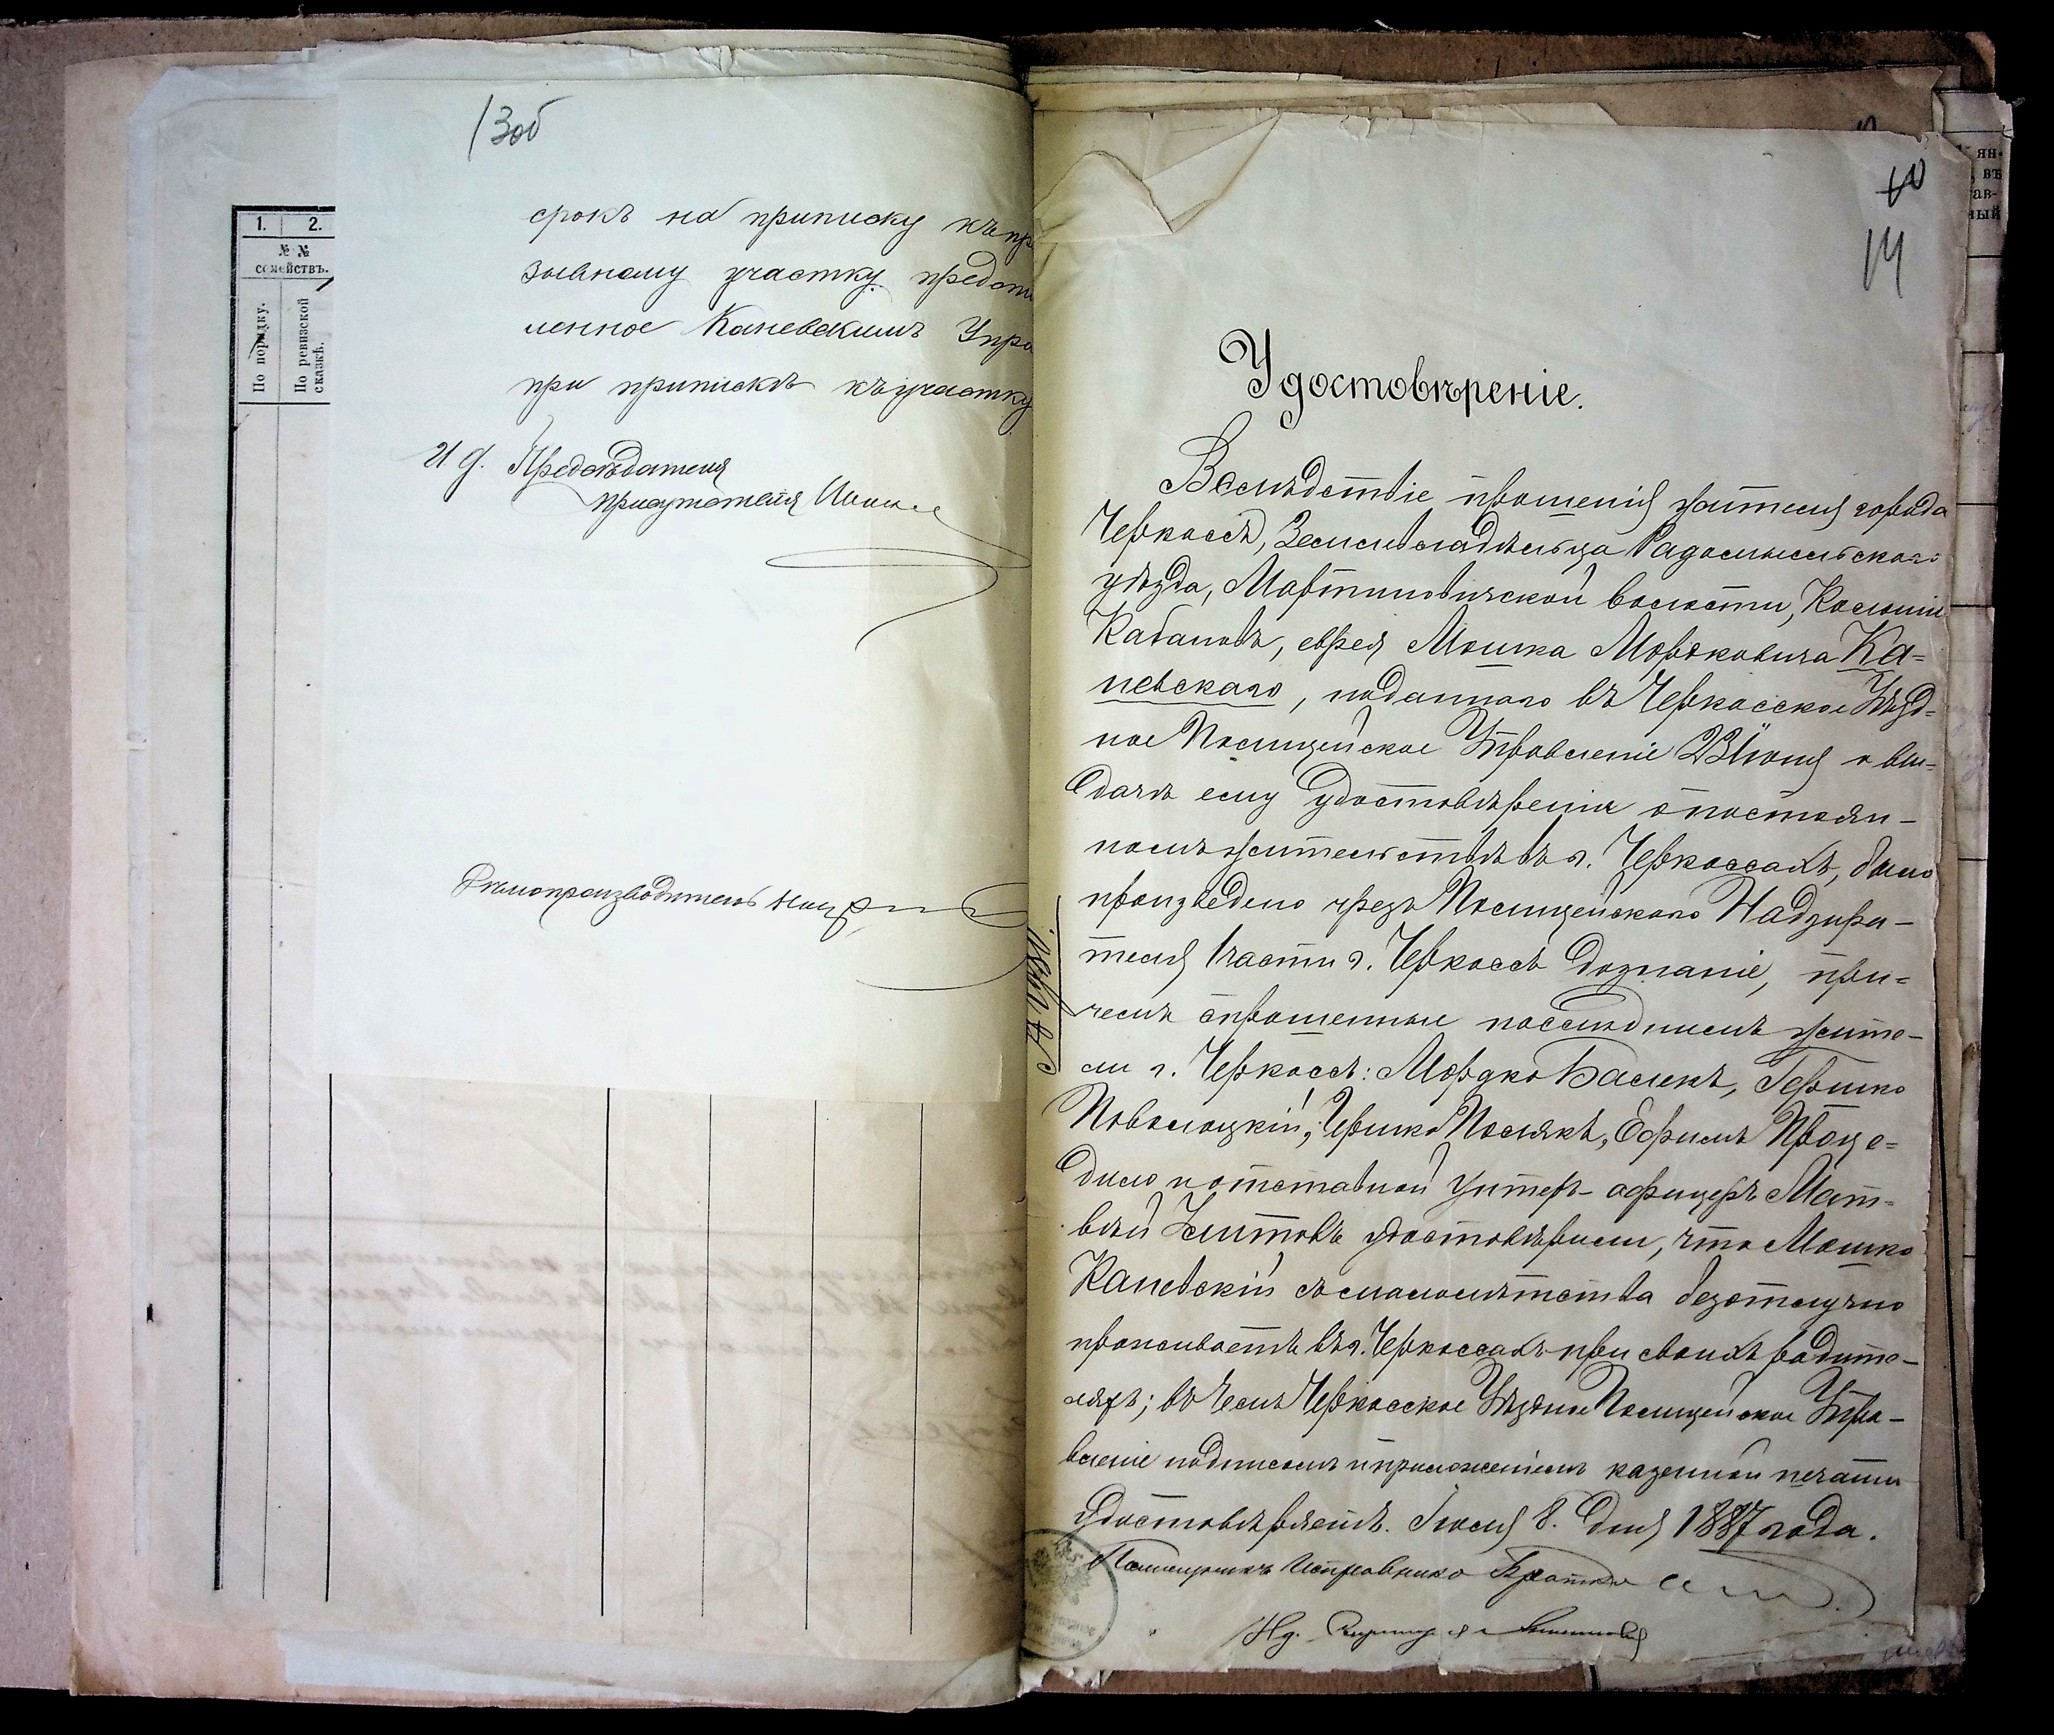 13об
1. 2.
№ №
семействъ.
По порядку.
По ревизской
сказкѣ.
срокъ на приписку къ пр
зывному участку, предст
ленное Каневскимъ Упра
при припискѣ къ участку
И д. Предсѣдателя
присутствія
Дѣлопроизводитель
14
Удостовѣреніе.
Вслѣдствіе прошенія жителя города
Черкассъ, Землевладѣльца Радомысльскаго
уѣзда, Мартиновичской волости, Колоніи
Кабановъ, еврея Мошка Мордковича Ка=
невскаго, поданнаго въ Черкасское Уѣзд=
ное Полицейское Управленіе 23 Іюня о вы=
дачѣ ему удостовѣренія о постоян-
номъ жительствѣ въ г. Черкассахъ, было
произведено чрезъ Полицейскаго Надзира-
теля 1 части г. Черкассъ дознаніе, при=
чемъ спрошенные послѣднимъ жите-
ли г. Черкассъ: Мордко Балекъ, Гершко
Поволоцкій, Гершко Полякъ, Ефимъ Проце=
дило и отставной Унтеръ-офицеръ Мат=
вѣй удостовѣрили, что Мошко
Каневскій съ малолѣтства безотлучно
проживаетъ въ г. Черкассахъ при своихъ родите-
ляхъ; въ чемъ Черкасское Уѣздное Полицейское Упра-
вленіе подписомъ и приложеніемъ казенной печати
удостовѣряетъ. Іюля 8. дня 1887 года.
Помощникъ Исправника